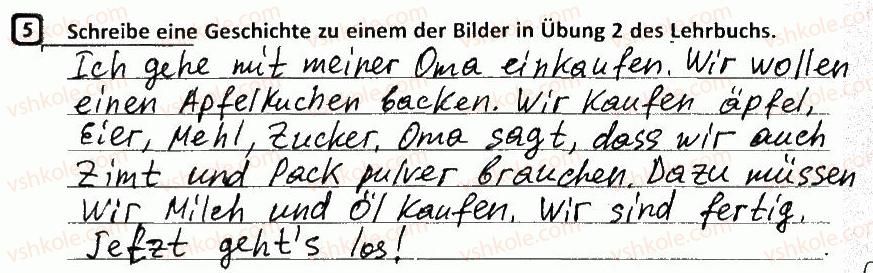 5 Schreibe eine Geschichte zu einem der Bilder in Übung 2 des Lehrbuchs.
Ich gehe mit meiner Oma einkaufen. Wir wollen
einen Apfelkuchen backen. Wir kaufen äpfel,
Eier, Mehl, Zucker. Oma sagt, dass wir auch
Zimt und Pack pulver brauchen. Dazu müssen
wir Milch und Öl kaufen. Wir sind fertig.
Jetzt geht's los!